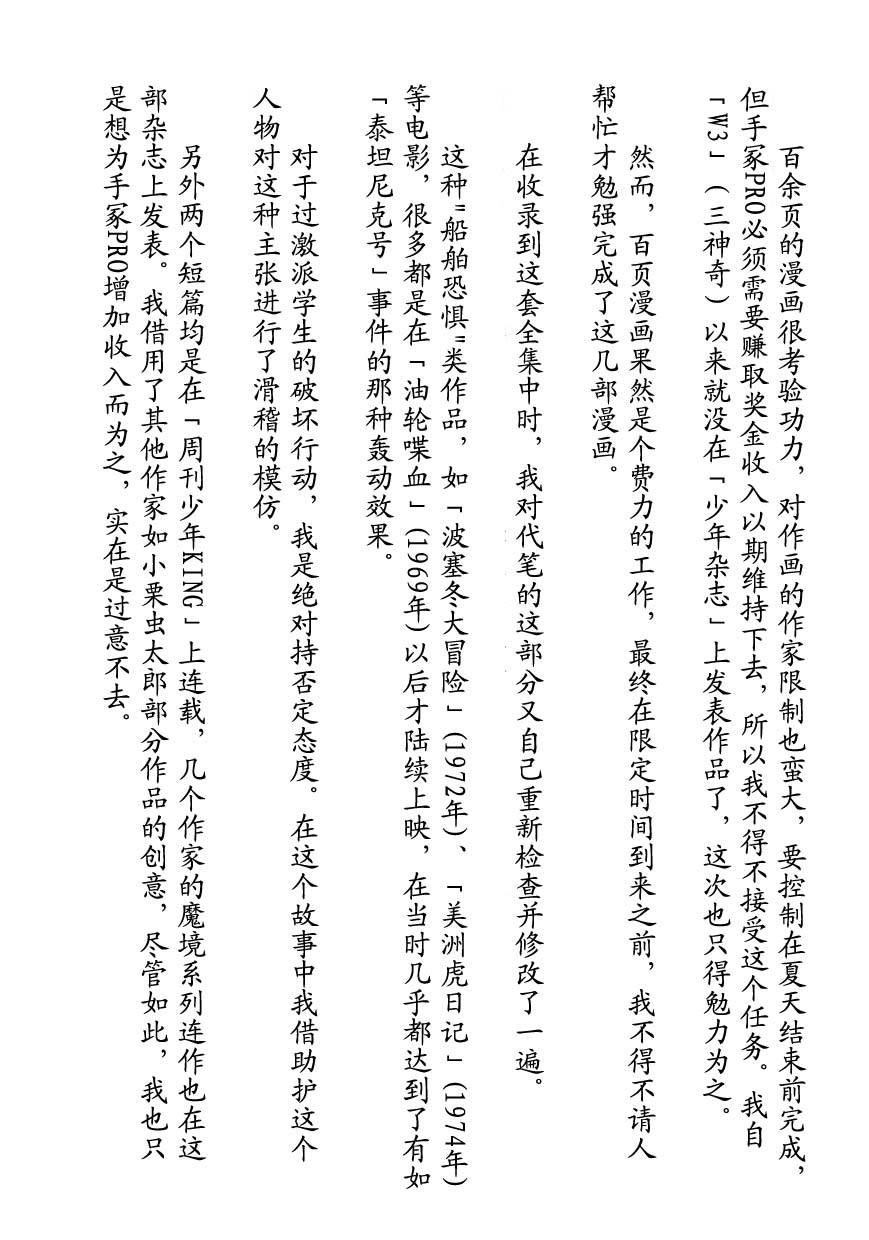 百余页的漫画很考验功力，对作画的作家限制也蛮大，要控制在夏天结束前完成，
但手冢PRO必须需要赚取奖金收入以期维持下去，所以我不得不接受这个任务。我自
「W3」（三神奇）以来就没在「少年杂志」上发表作品了，这次也只得勉力为之。
然而，百页漫画果然是个费力的工作，最终在限定时间到来之前，我不得不请人
帮忙才勉强完成了这几部漫画。
在收录到这套全集中时，我对代笔的这部分又自己重新检查并修改了一遍。
这种"船舶恐惧"类作品，如「波塞冬大冒险」(1972年)、「美洲虎日记」(1974年)
等电影，很多都是在「油轮喋血」(1969年)以后才陆续上映，在当时几乎都达到了有如
「泰坦尼克号」事件的那种轰动效果。
对于过激派学生的破坏行动，我是绝对持否定态度。在这个故事中我借助护这个
人物对这种主张进行了滑稽的模仿。
另外两个短篇均是在「周刊少年KING」上连载，几个作家的魔境系列连作也在这
部杂志上发表。我借用了其他作家如小栗虫太郎部分作品的创意，尽管如此，我也只
是想为手冢PRO增加收入而为之，实在是过意不去。